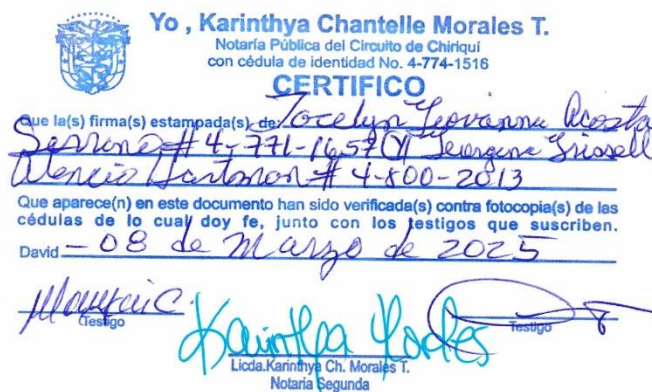 Yo , Karinthya Chantelle Morales T.
Notaría Pública del Circuito de Chiriquí
con cédula de identidad No. 4-774-1516
CERTIFICO
Que la(s) firma(s) estampada(s) de: Jocelyn Acosta
# 4-771-1657 Grissell
Atencio # 4-800-2013
Que aparece(n) en este documento han sido verificada(s) contra fotocopia(s) de las
cédulas de lo cual doy fe, junto con los testigos que suscriben.
David - 08 de Marzo de 2025
Testigo
Karinthya Morales
Testigo
Licda.Karinthya Ch. Morales T.
Notaria Segunda